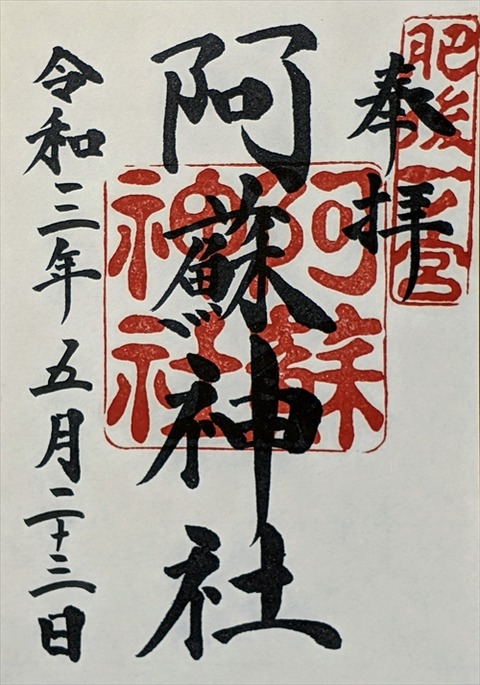 肥後一之宮
奉拝
阿蘇神社
阿蘇神社
令和三年五月二十三日